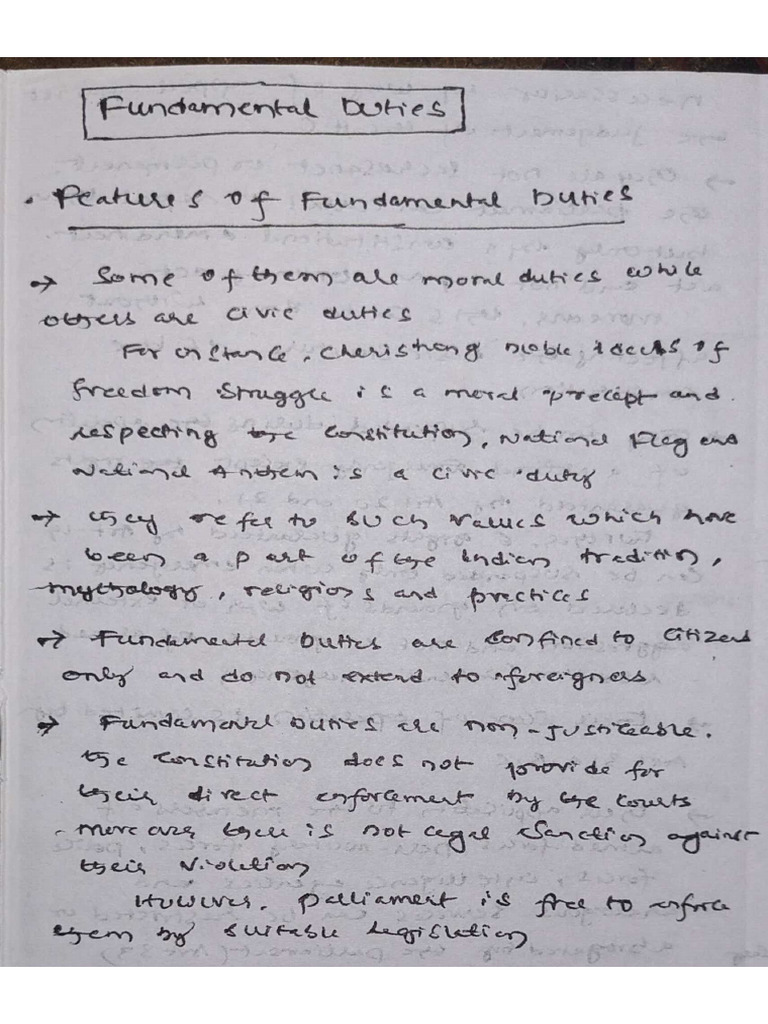 Fundamental Duties
. Features of Fundamental Duties
→ Some of them are moral duties while
others are civic duties
For instance, cherishing noble ideals of
freedom struggle is a moral precept and
respecting the Constitution, National Flag and
National Anthem is a civic duty
→ they refer to such values which have
been a part of the Indian tradition,
mythology, religions and practices
→ Fundamental Duties are confined to citizens
only and do not extend to foreigners
→ Fundamental Duties are non-justiceable.
the constitution does not provide for
their direct enforcement by the courts
. moreover there is not legal sanction against
their violation
However, parliament is free to enforce
them by suitable legislation